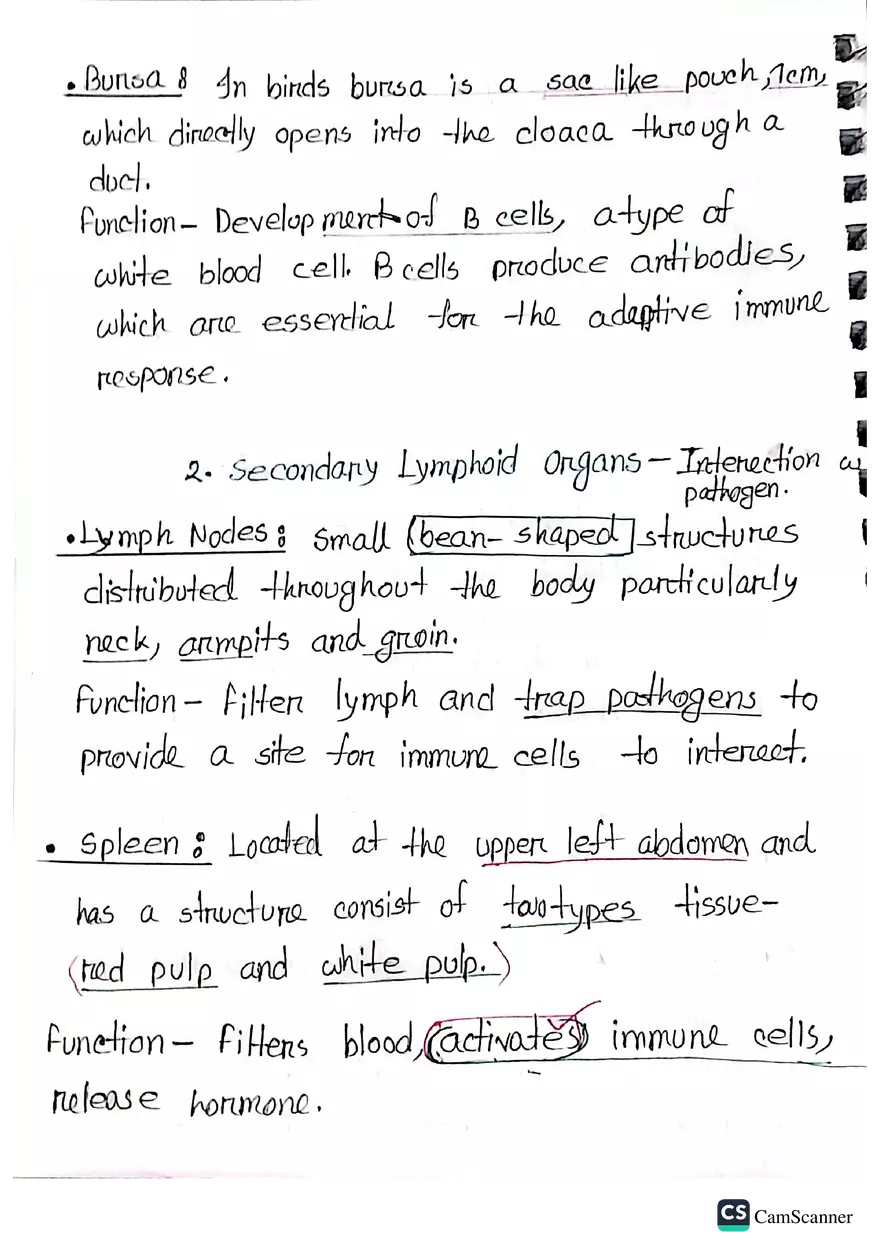 • Bursa : In birds bursa is a sac like pouch, 1cm,
which directly opens into the cloaca through a
duct.
Function - Development of B cells, a type of
white blood cell. B cells produce antibodies,
which are essential for the adaptive immune
response.
2. Secondary Lymphoid Organs - Interection w
pathogen.
• Lymph Nodes : Small bean-shaped structures
distributed throughout the body particularly
neck, armpits and groin.
Function - Filter lymph and trap pathogens to
provide a site for immune cells to interect.
• Spleen : Located at the upper left abdomen and
has a structure consist of two types tissue-
(red pulp and white pulp.)
Function - Filters blood, (activates) immune cells,
release hormone.
CS CamScanner